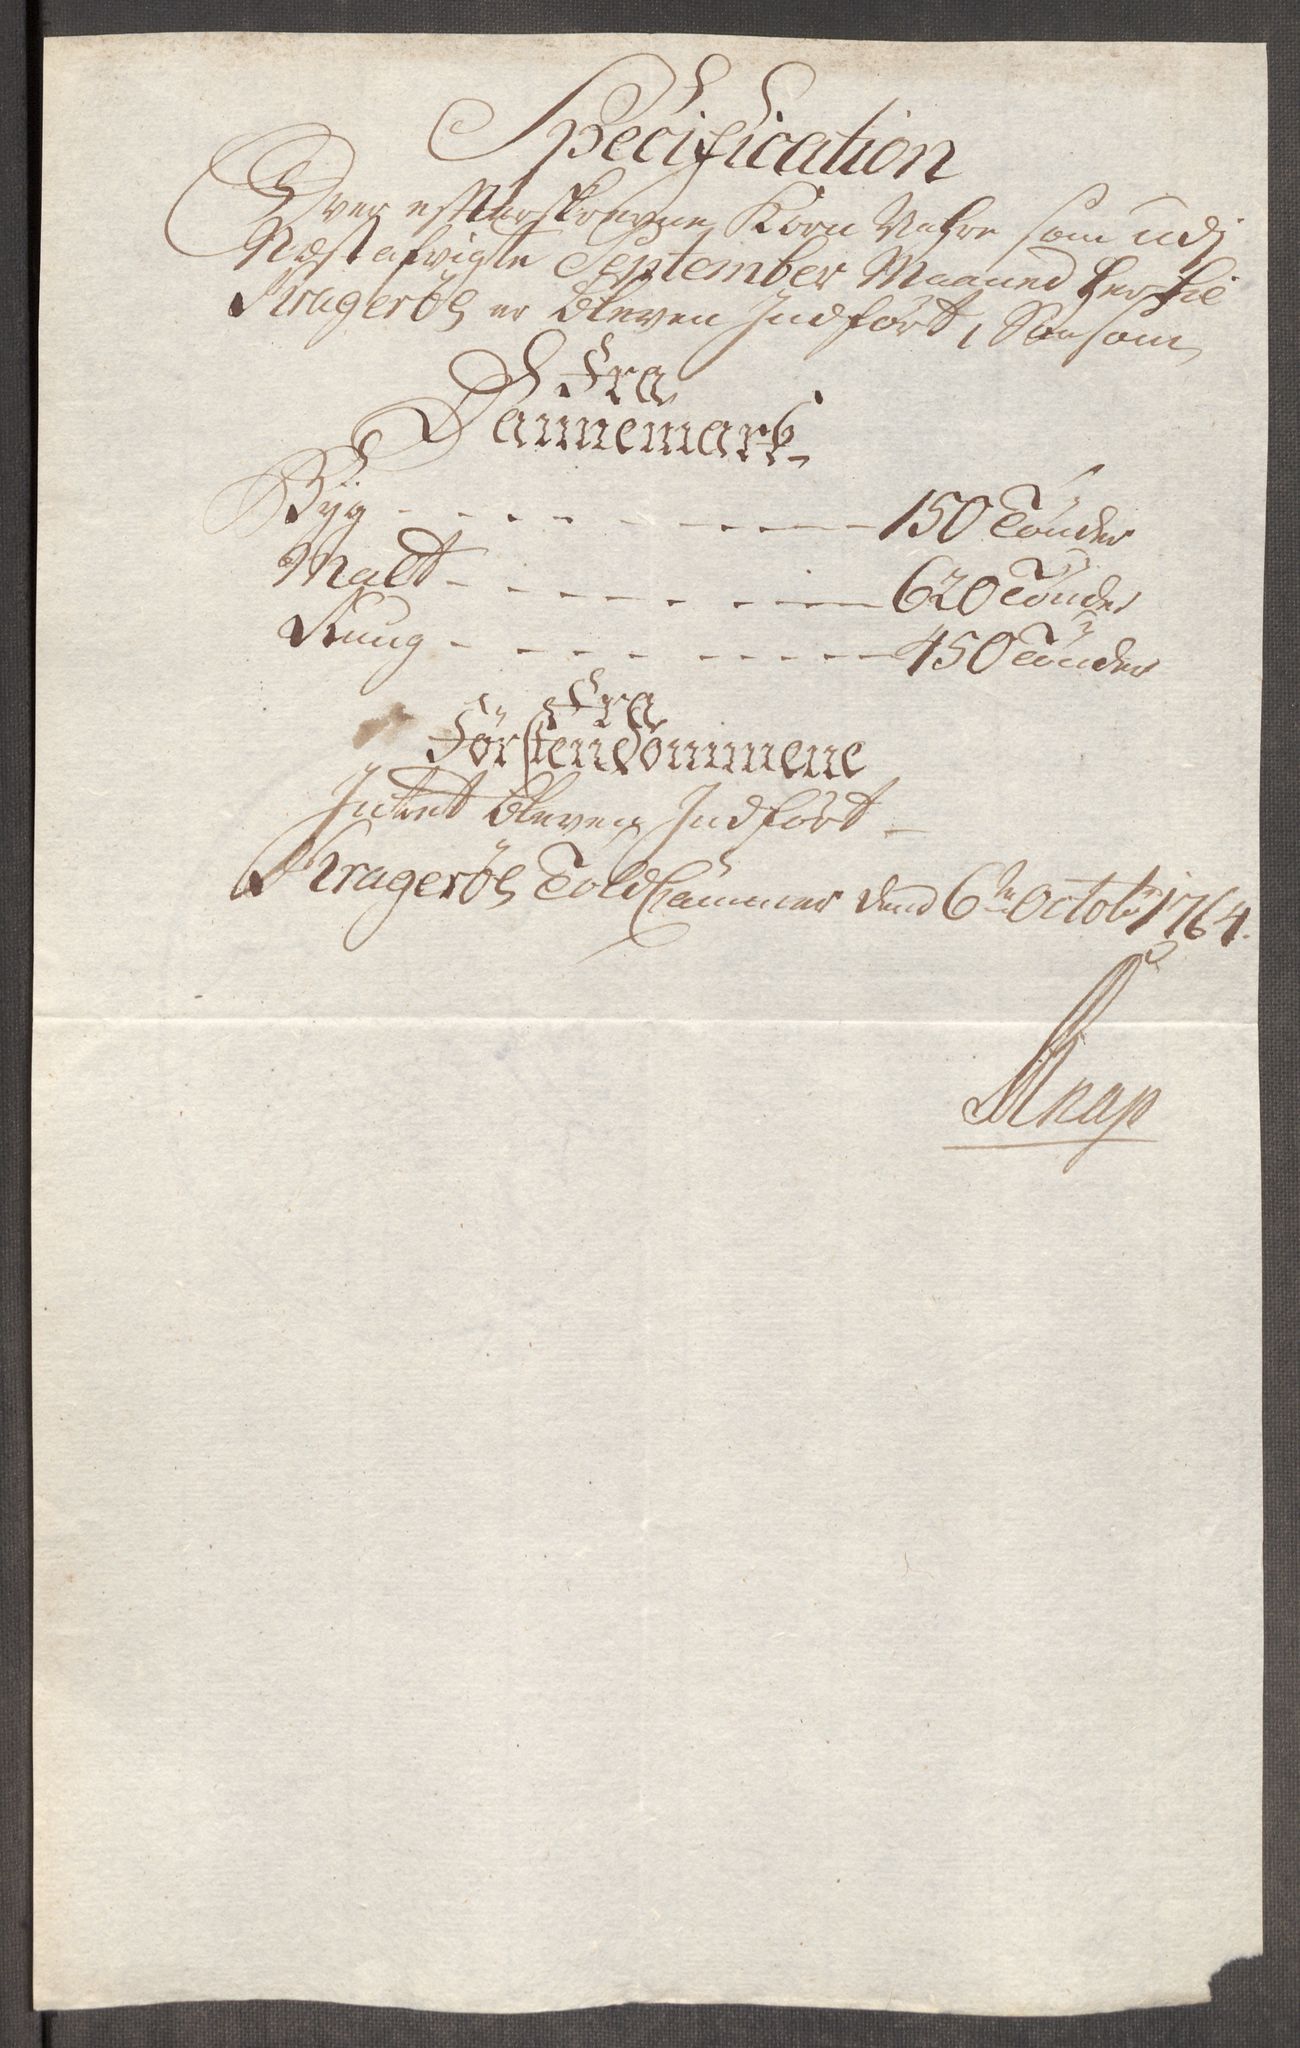 Specification
Over efterskrevne Korn Vahre som udj
Næstafvigte September Maaned her til
Kragerøe er bleven Indført, Saasom
Fra
Dannemark
Byg - - - - - - - 150 Tønder
Malt - - - - - - - 620 Tønder
Rung - - - - - - - 450 Tønder
Fra
Førstendommene
Intet bleven Indført -
Kragerøe Told Cammer dend 6te Octobr 1764.
Knap